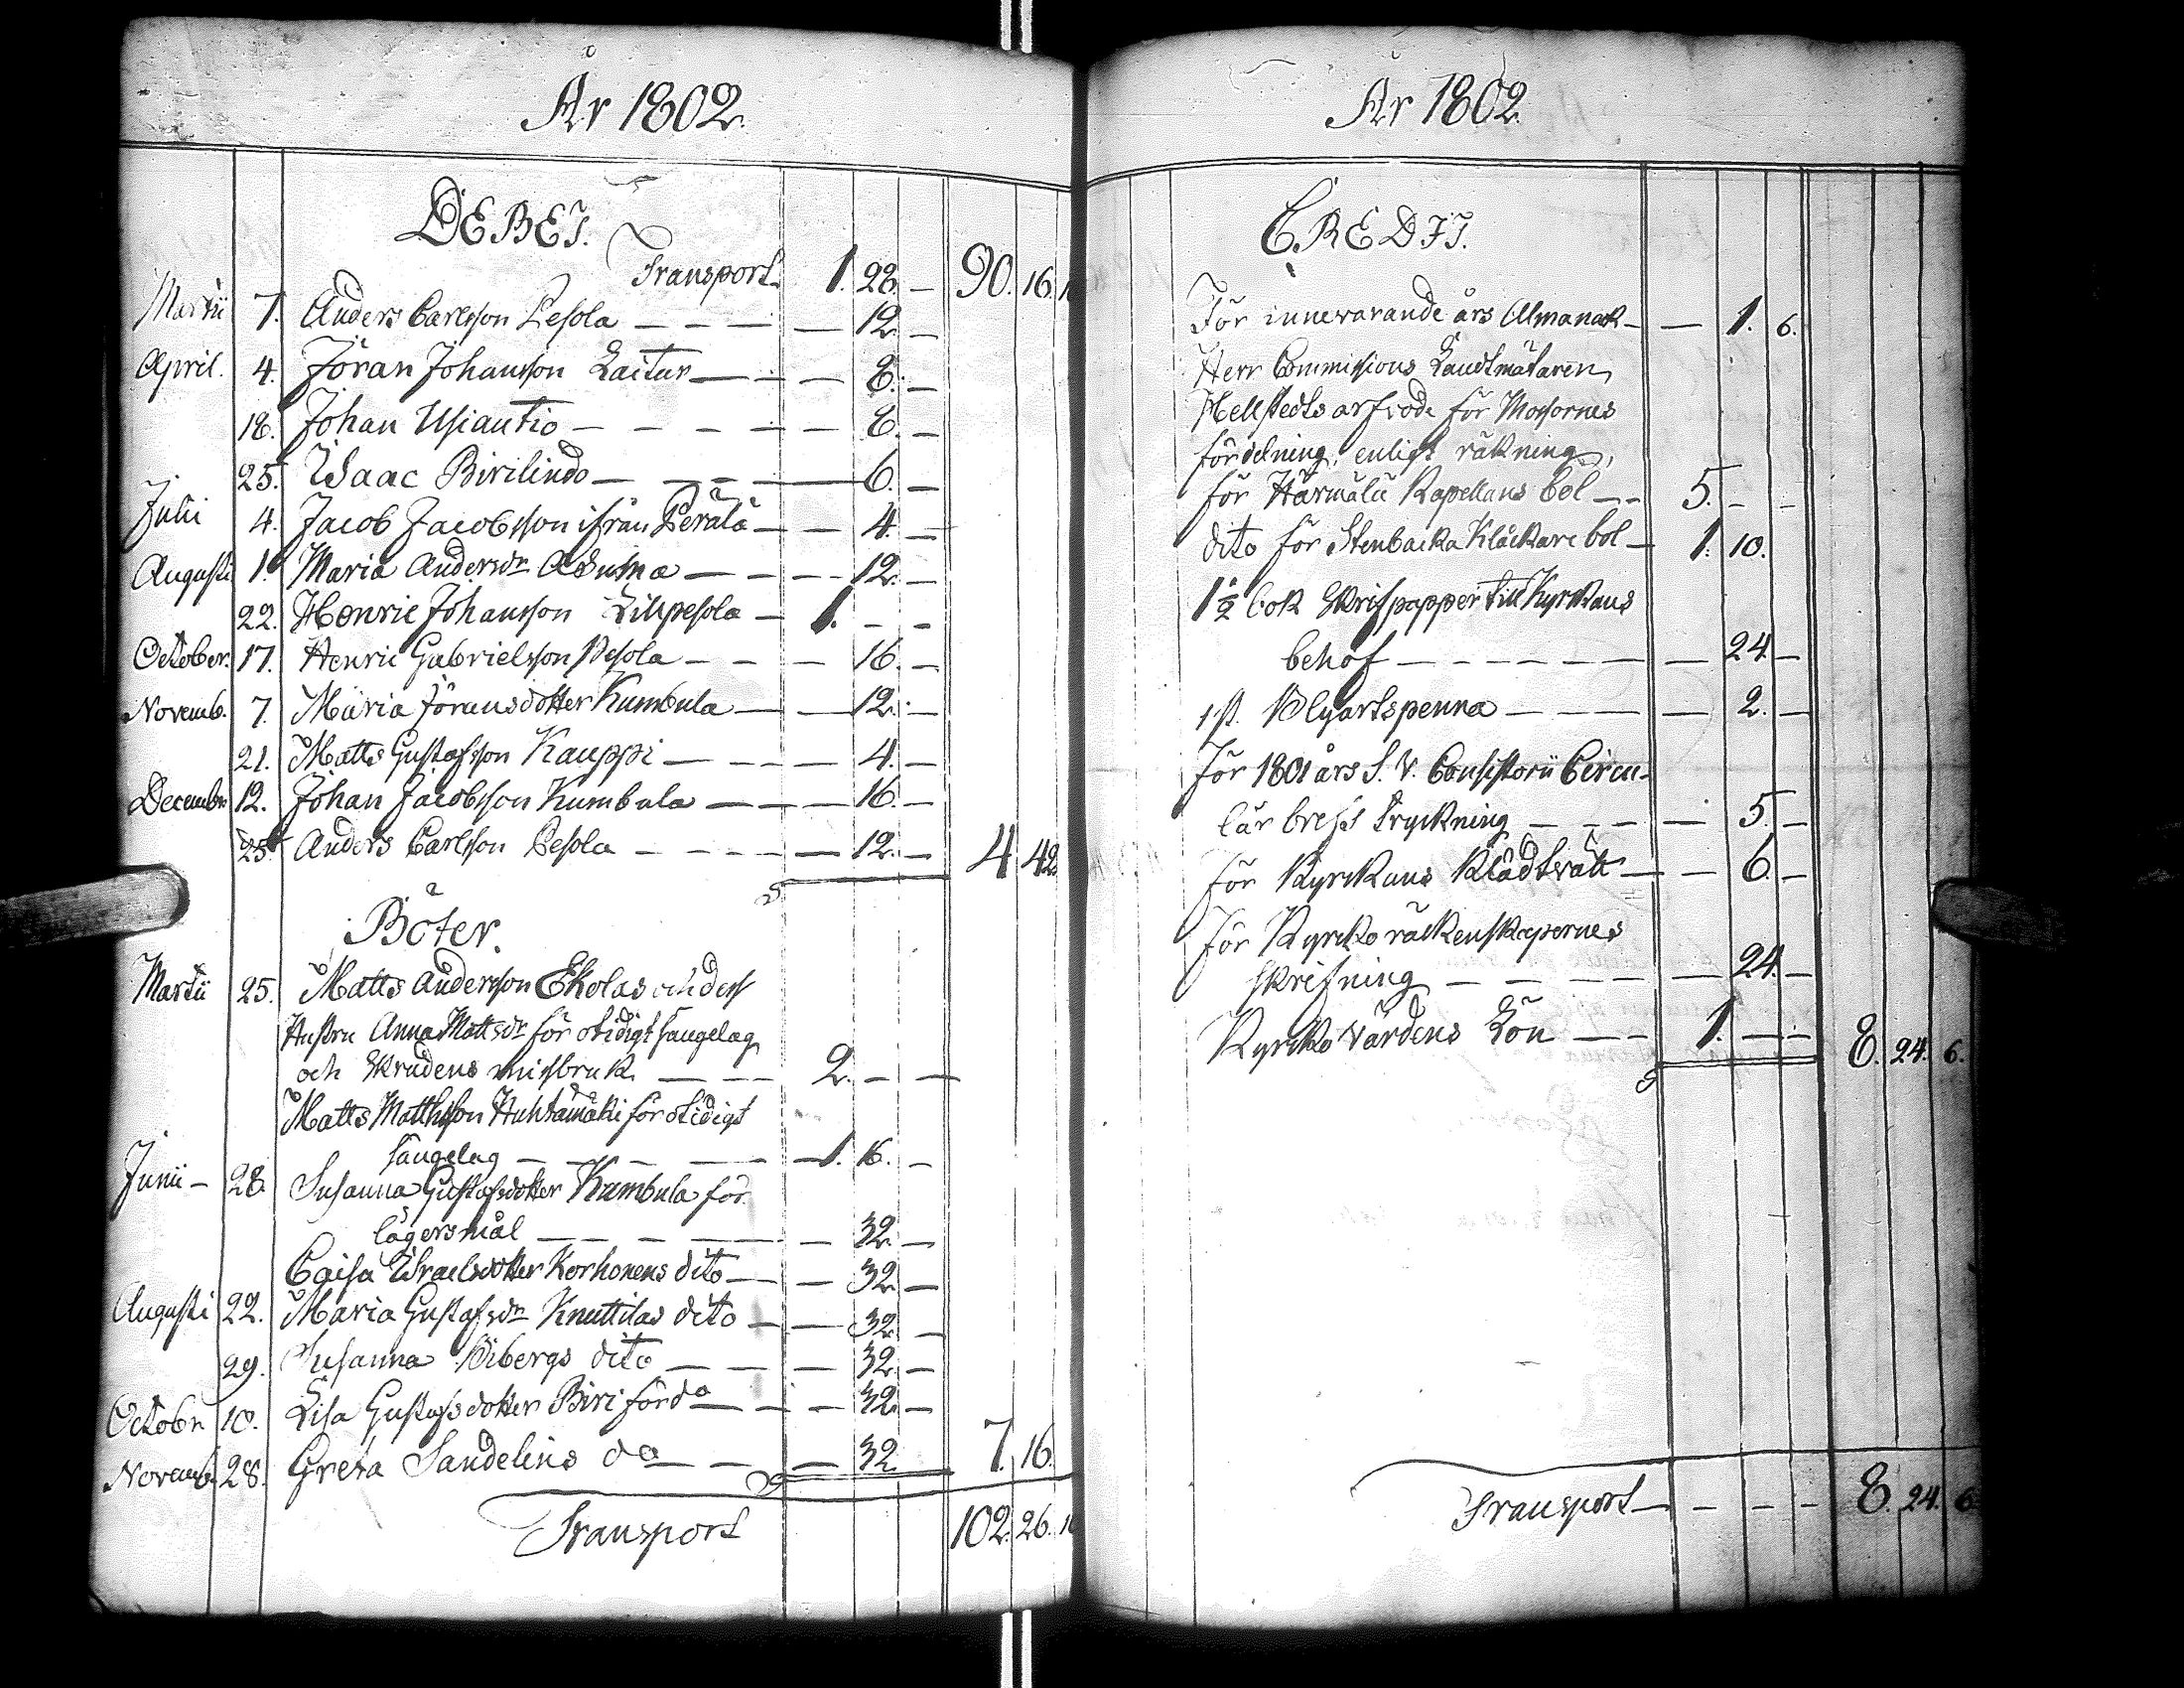 År 1802.
DEBET.
Transport. 1. 28. — 90. 16.
Martii 7. Anders Carlsson Pesola — — — — 12. —
April. 4. Jöran Johansson Laitur — — — 8. —
18. Johan Usiautio — — — — — 8. —
25. Isaac Birilindo — — — — 6. —
Julii 4. Jacob Jacobsson ifrån Perälä — — 4. —
Augusti 1. Maria Andersdr Asuma — — — — 12. —
22. Henric Johansson Lillpesola — 1. — —
October. 17. Henric Gabrielsson Pesola — — — 16. —
Novemb. 7. Maria Jöransdotter Kumbula — — 12. —
21. Matts Gustafsson Kauppi — — — — 4. —
Decembr 12. Johan Jacobsson Kumbula — — — 16. —
25. Anders Carlsson Pesola — — — — — 12. — 4. 42.
Böter.
Martii 25. Matts Andersson Ekolas och dess
Hustru Anna Mattsdr för otidigt sängelag
och Skrudens missbruk — — — 2. — —
Matts Matthsson Huhtamäki för otidigt
sängelag — — — — — 1. 16. —
Junii — 28. Susanna Gustafsdotter Kumbula för
lägersmål — — — — — — 32. —
Caisa Israelsdotter Korhonens dito — — 32. —
Augusti 22. Maria Gustafsdr Knuttilas dito — — 32. —
29. Susanna Öibergs dito — — — 32. —
Octobr. 10. Lisa Gustafsdotter Biri för do — — — 32. —
Novemb. 28. Greta Sandelins do — — — 32 7. 16.
Transport 102. 26.
År 1802.
CREDIT.
För innevarande års Almanack — — 1. 6.
Herr Commissions Landtmätaren
Hellstedts arfvode för Mossornes
fördelning, enligt räkning,
för Härmälä Kapellans bol — — 5. — —
dito för Stenbacka Klåckare bol — 1. 10.
1½ bok Skrifpapper till Kyrkans
behof — — — — — — — 24. —
1 st. Blyartspenna — — — — 2. —
För 1801 års S. V. Consistorii Circu-
lär brefs tryckning — — — — 5. —
för Kyrkans Klädtvätt — — 6. —
för Kyrcko räkenskapernes
skrifning — — — — — 24. —
Kyrcko Värdens Lön — — 1. — — 8. 24. 6.
Transport — — — — 8. 24. 6.